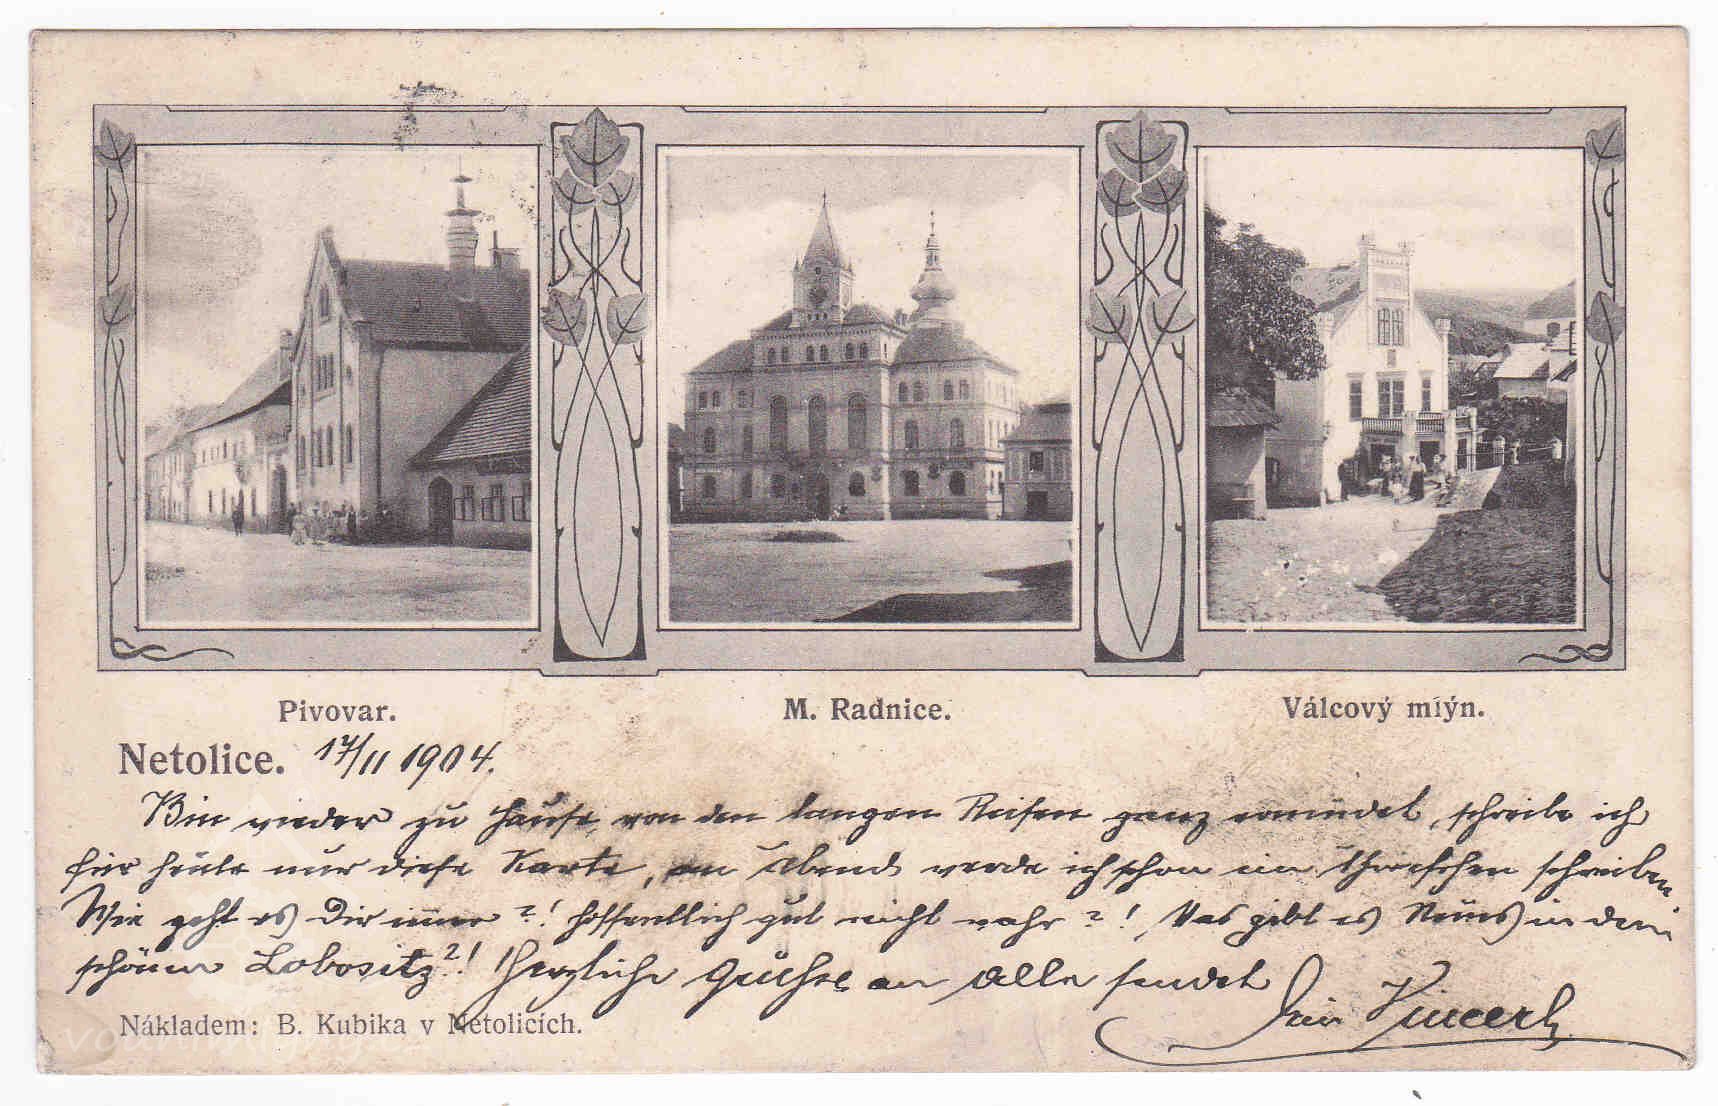 Pivovar.
M. Radnice.
Válcový mlýn.
Netolice. 17/II 1904.
Bin wieder zu Hause, von den langen Reisen ganz ermüdet, schreibe ich
für heute nur diese Karte, am Abend werde ich schon ein schreiben
Wie geht es Dir immer ?! hoffentlich gut nicht wahr ?! Was gibt es Neues in dem
schönen Lobositz?! Herzliche Grüße an Alle sendet
Nákladem: B. Kubika v Netolicích.
vodnimlyny.cz